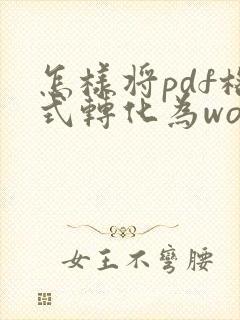 怎樣將pdf格
式轉化為wo
女王不彎腰